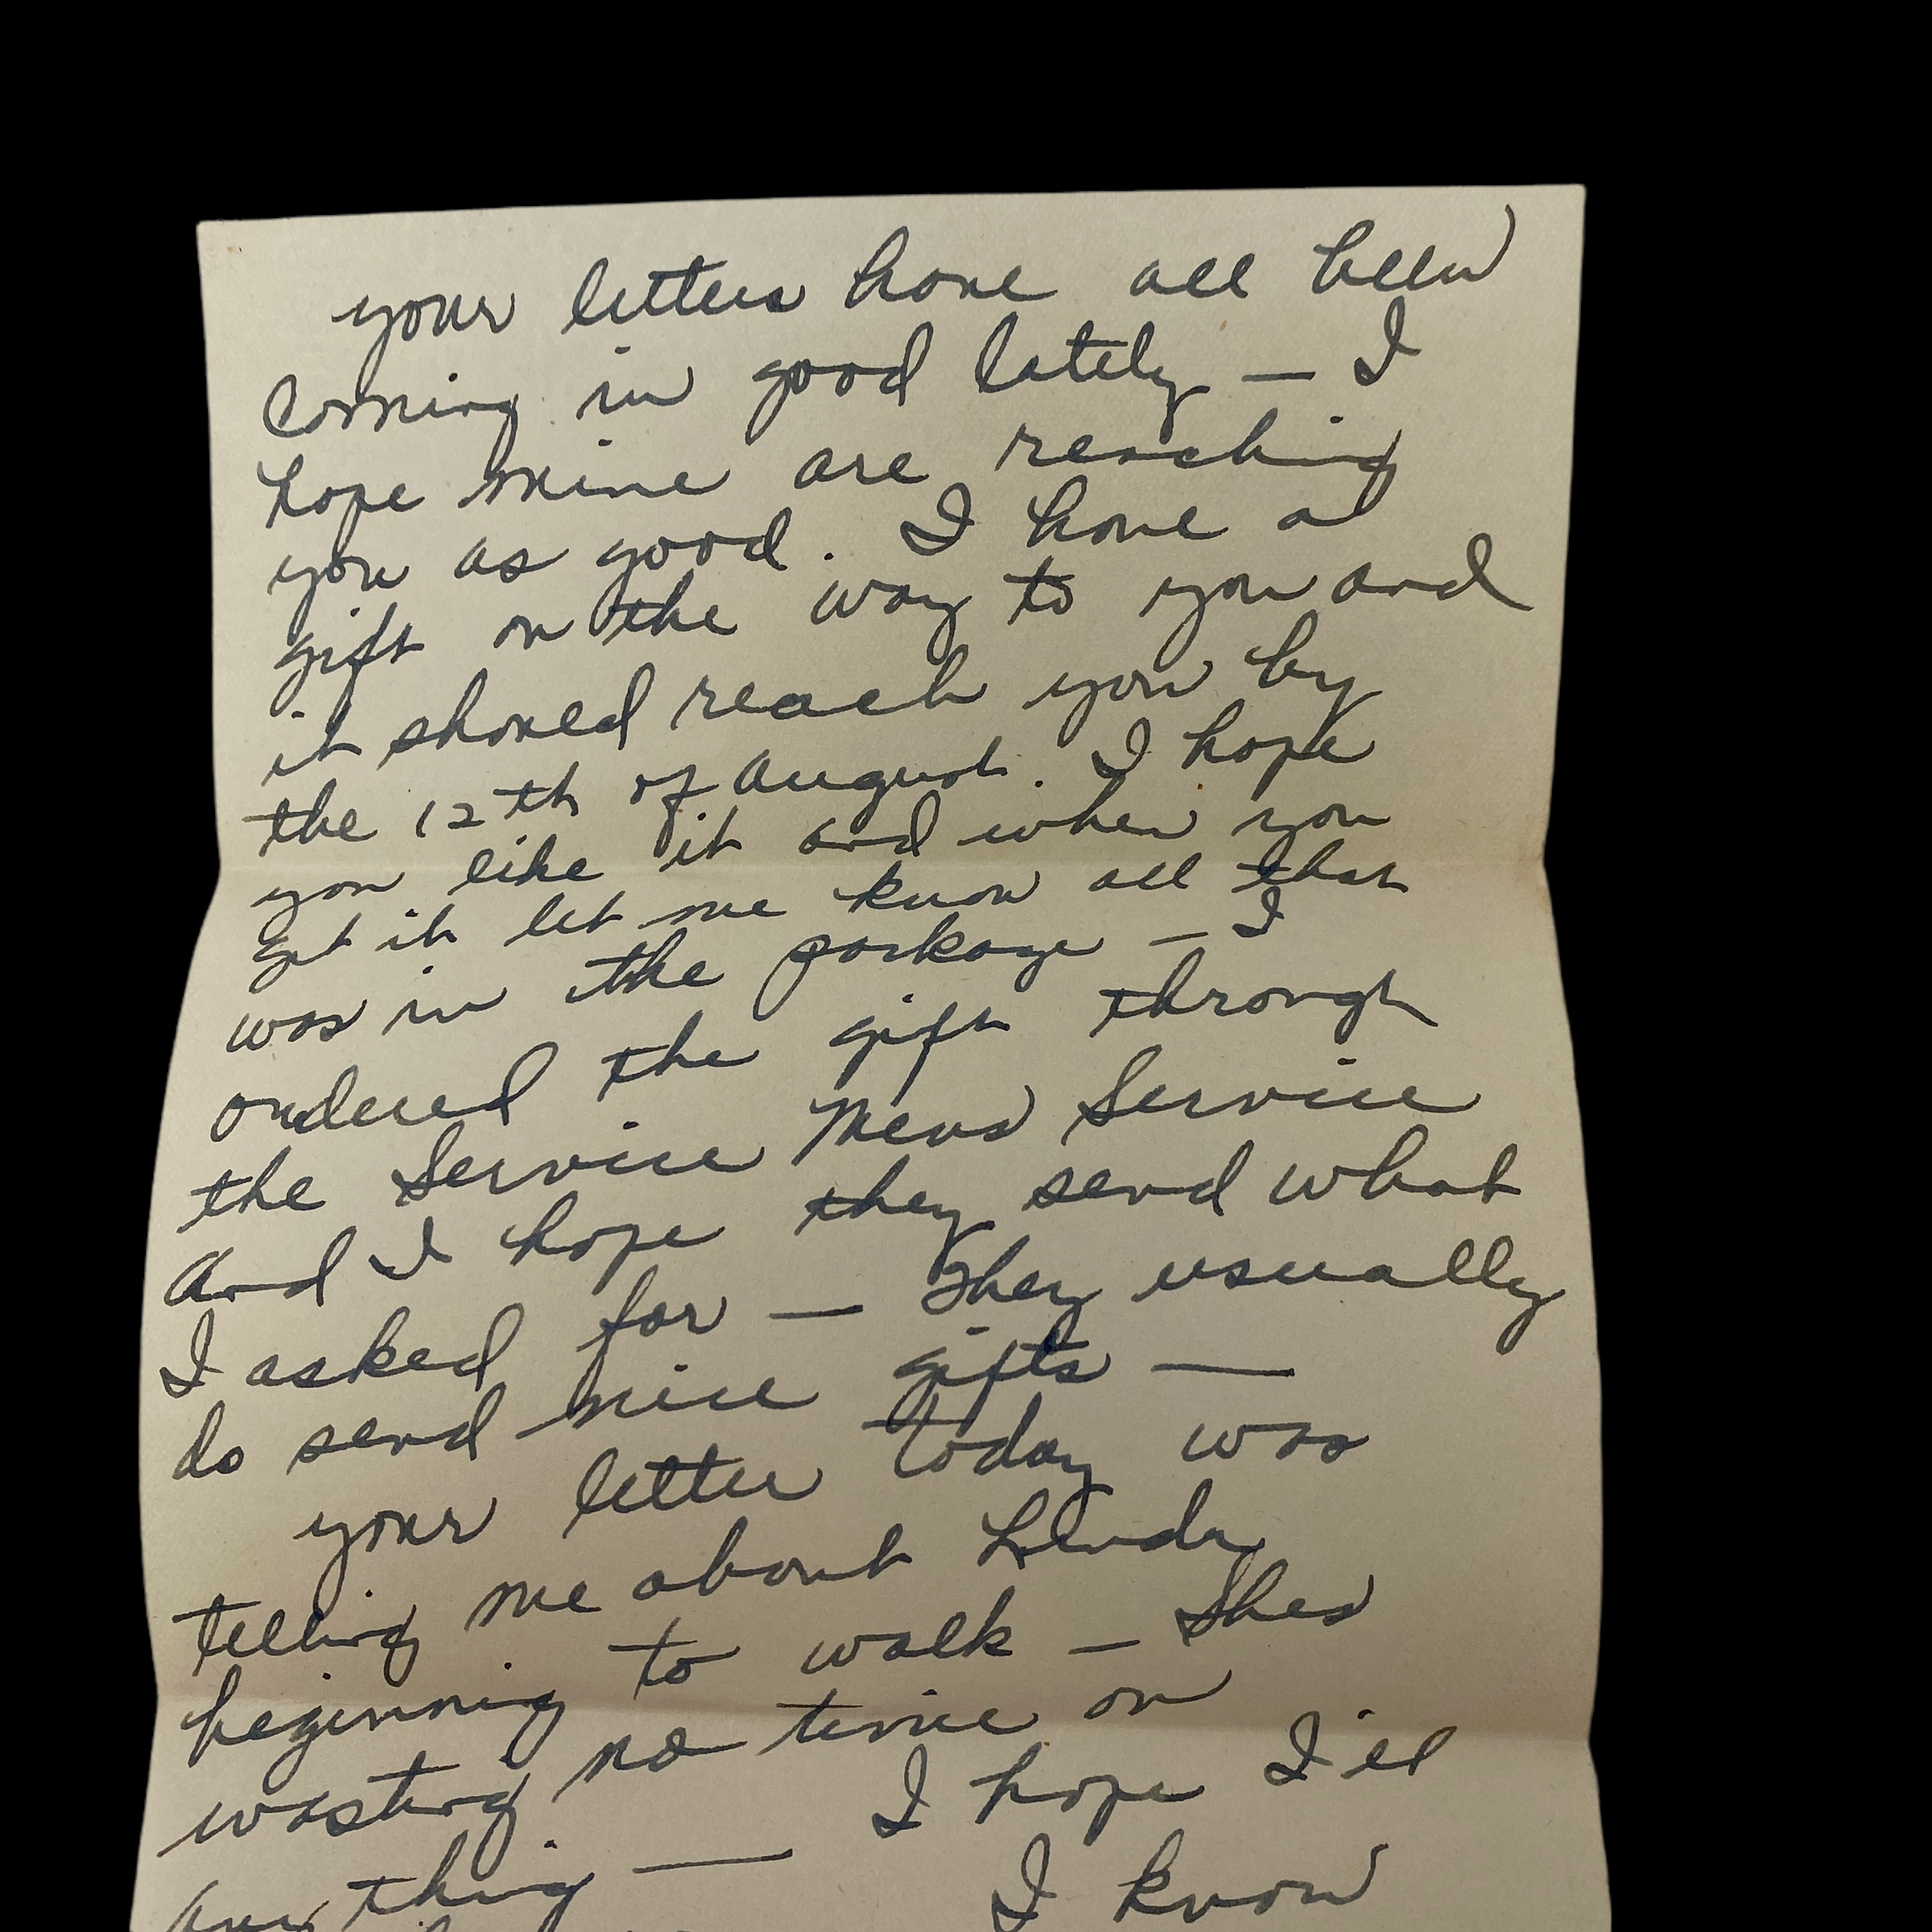 your letters have all been
coming in good lately — I
hope mine are reaching
you as good. I have a
gift on the way to you and
it should reach you by
the 12th of August. I hope
you like it and when you
get it let me know all that
was in the package — I
ordered the gift through
the Service Mens Service
and I hope they send what
I asked for — They usually
do send nice gifts —
your letter today was
telling me about Linda
beginning to walk — Shes
wasting no time on
anything — I hope I'll
I know